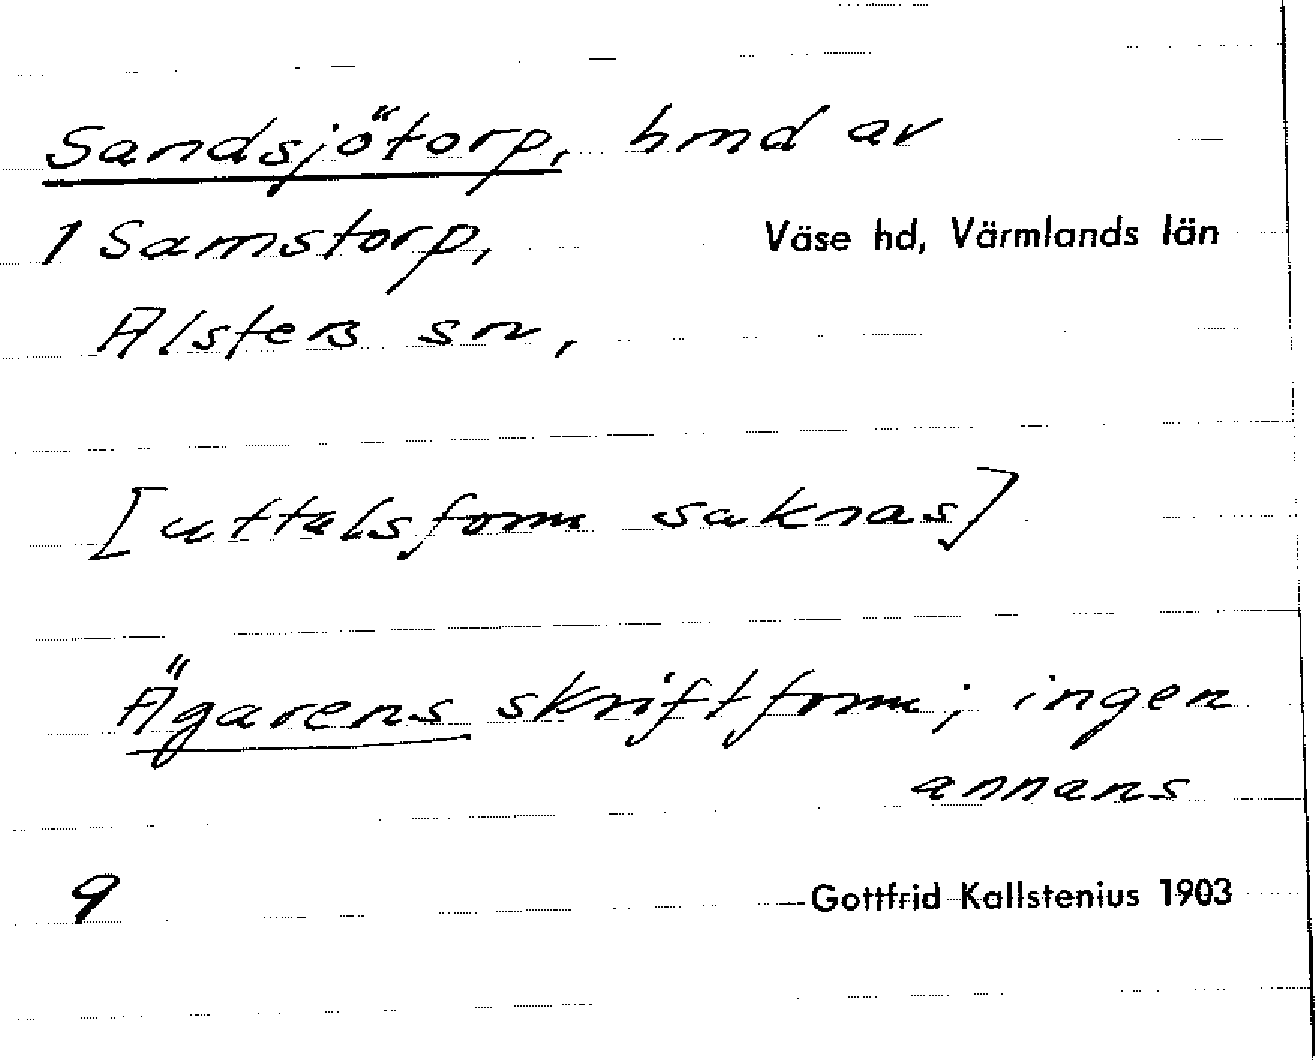 Sandsjötorp, hmd av
1 Samstorp,
Väse hd, Värmlands län
Alsters sn,
[uttalsform saknas]
Ägarens skriftform; ingen
annans
9
Gottfrid Kallstenius 1903